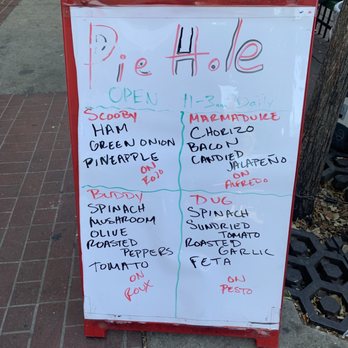 Pie Hole
OPEN 11-3am Daily
SCOOBY
HAM
GREEN ONION
PINEAPPLE
ON
ROJO
MARMADUKE
CHORIZO
BACON
CANDIED
JALAPEÑO
ON
ALFREDO
BUDDY
SPINACH
MUSHROOM
OLIVE
ROASTED
PEPPERS
TOMATO
ON
ROUX
DUG
SPINACH
SUNDRIED
TOMATO
ROASTED
GARLIC
FETA
ON
PESTO